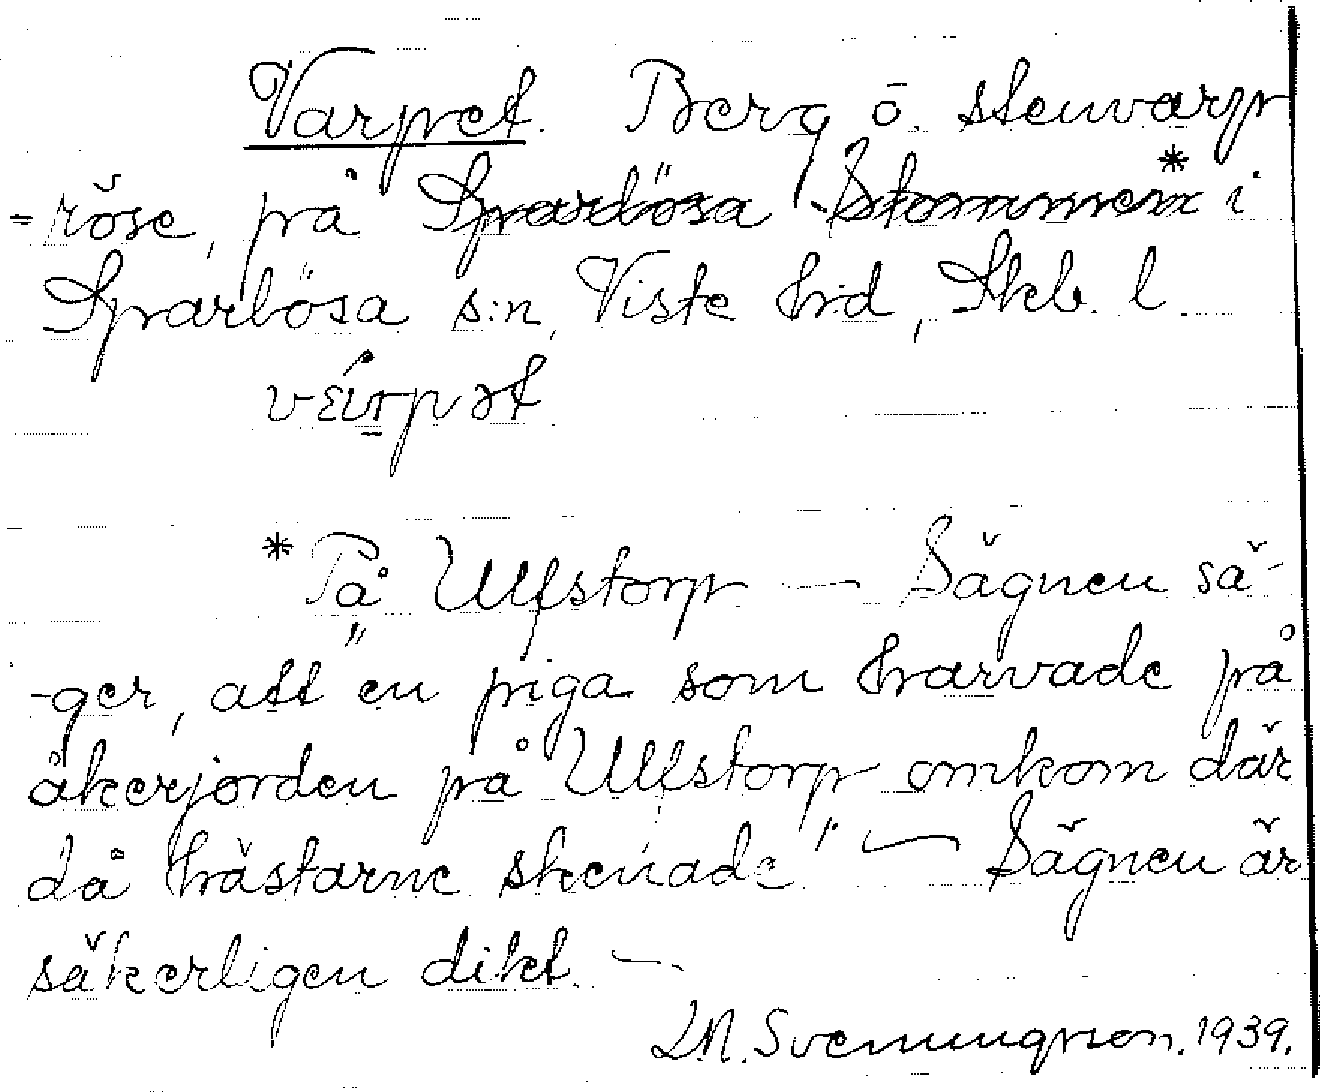 Varpet. Berg o. stenvarp
=röse, på Sparlösa Stommen* i
Sparlösa s:n, Viste hrd, Skb. l.
*På Ulfstorp — Sägnen sä-
-ger, att "en piga som harvade på
åkerjorden på Ulfstorp omkom där
då hästarne skenade". — Sägnen är
säkerligen dikt. —
L.M. Svenungsson. 1939.